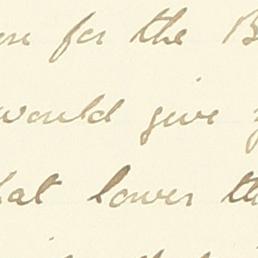 for the B
would give
hat lower th